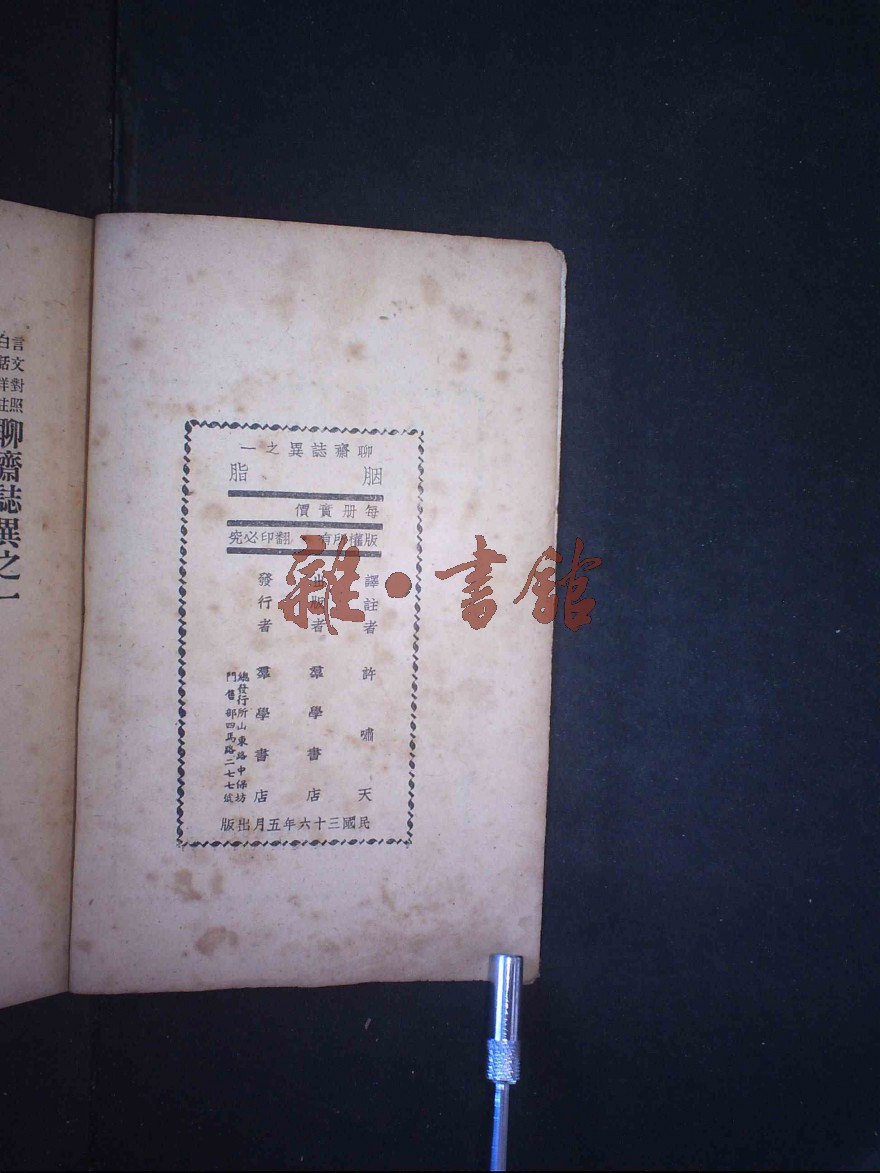 聊齋誌異之一
胭脂
每册實價
版權所有 翻印必究
譯註者 許嘯天
出版者 羣學書店
發行者 羣學書店
總發行所山東路中保坊
門售部四馬路二七七號
民國三十六年五月出版
言文對照
白話詳註
聊齋誌異之一
雜·書館